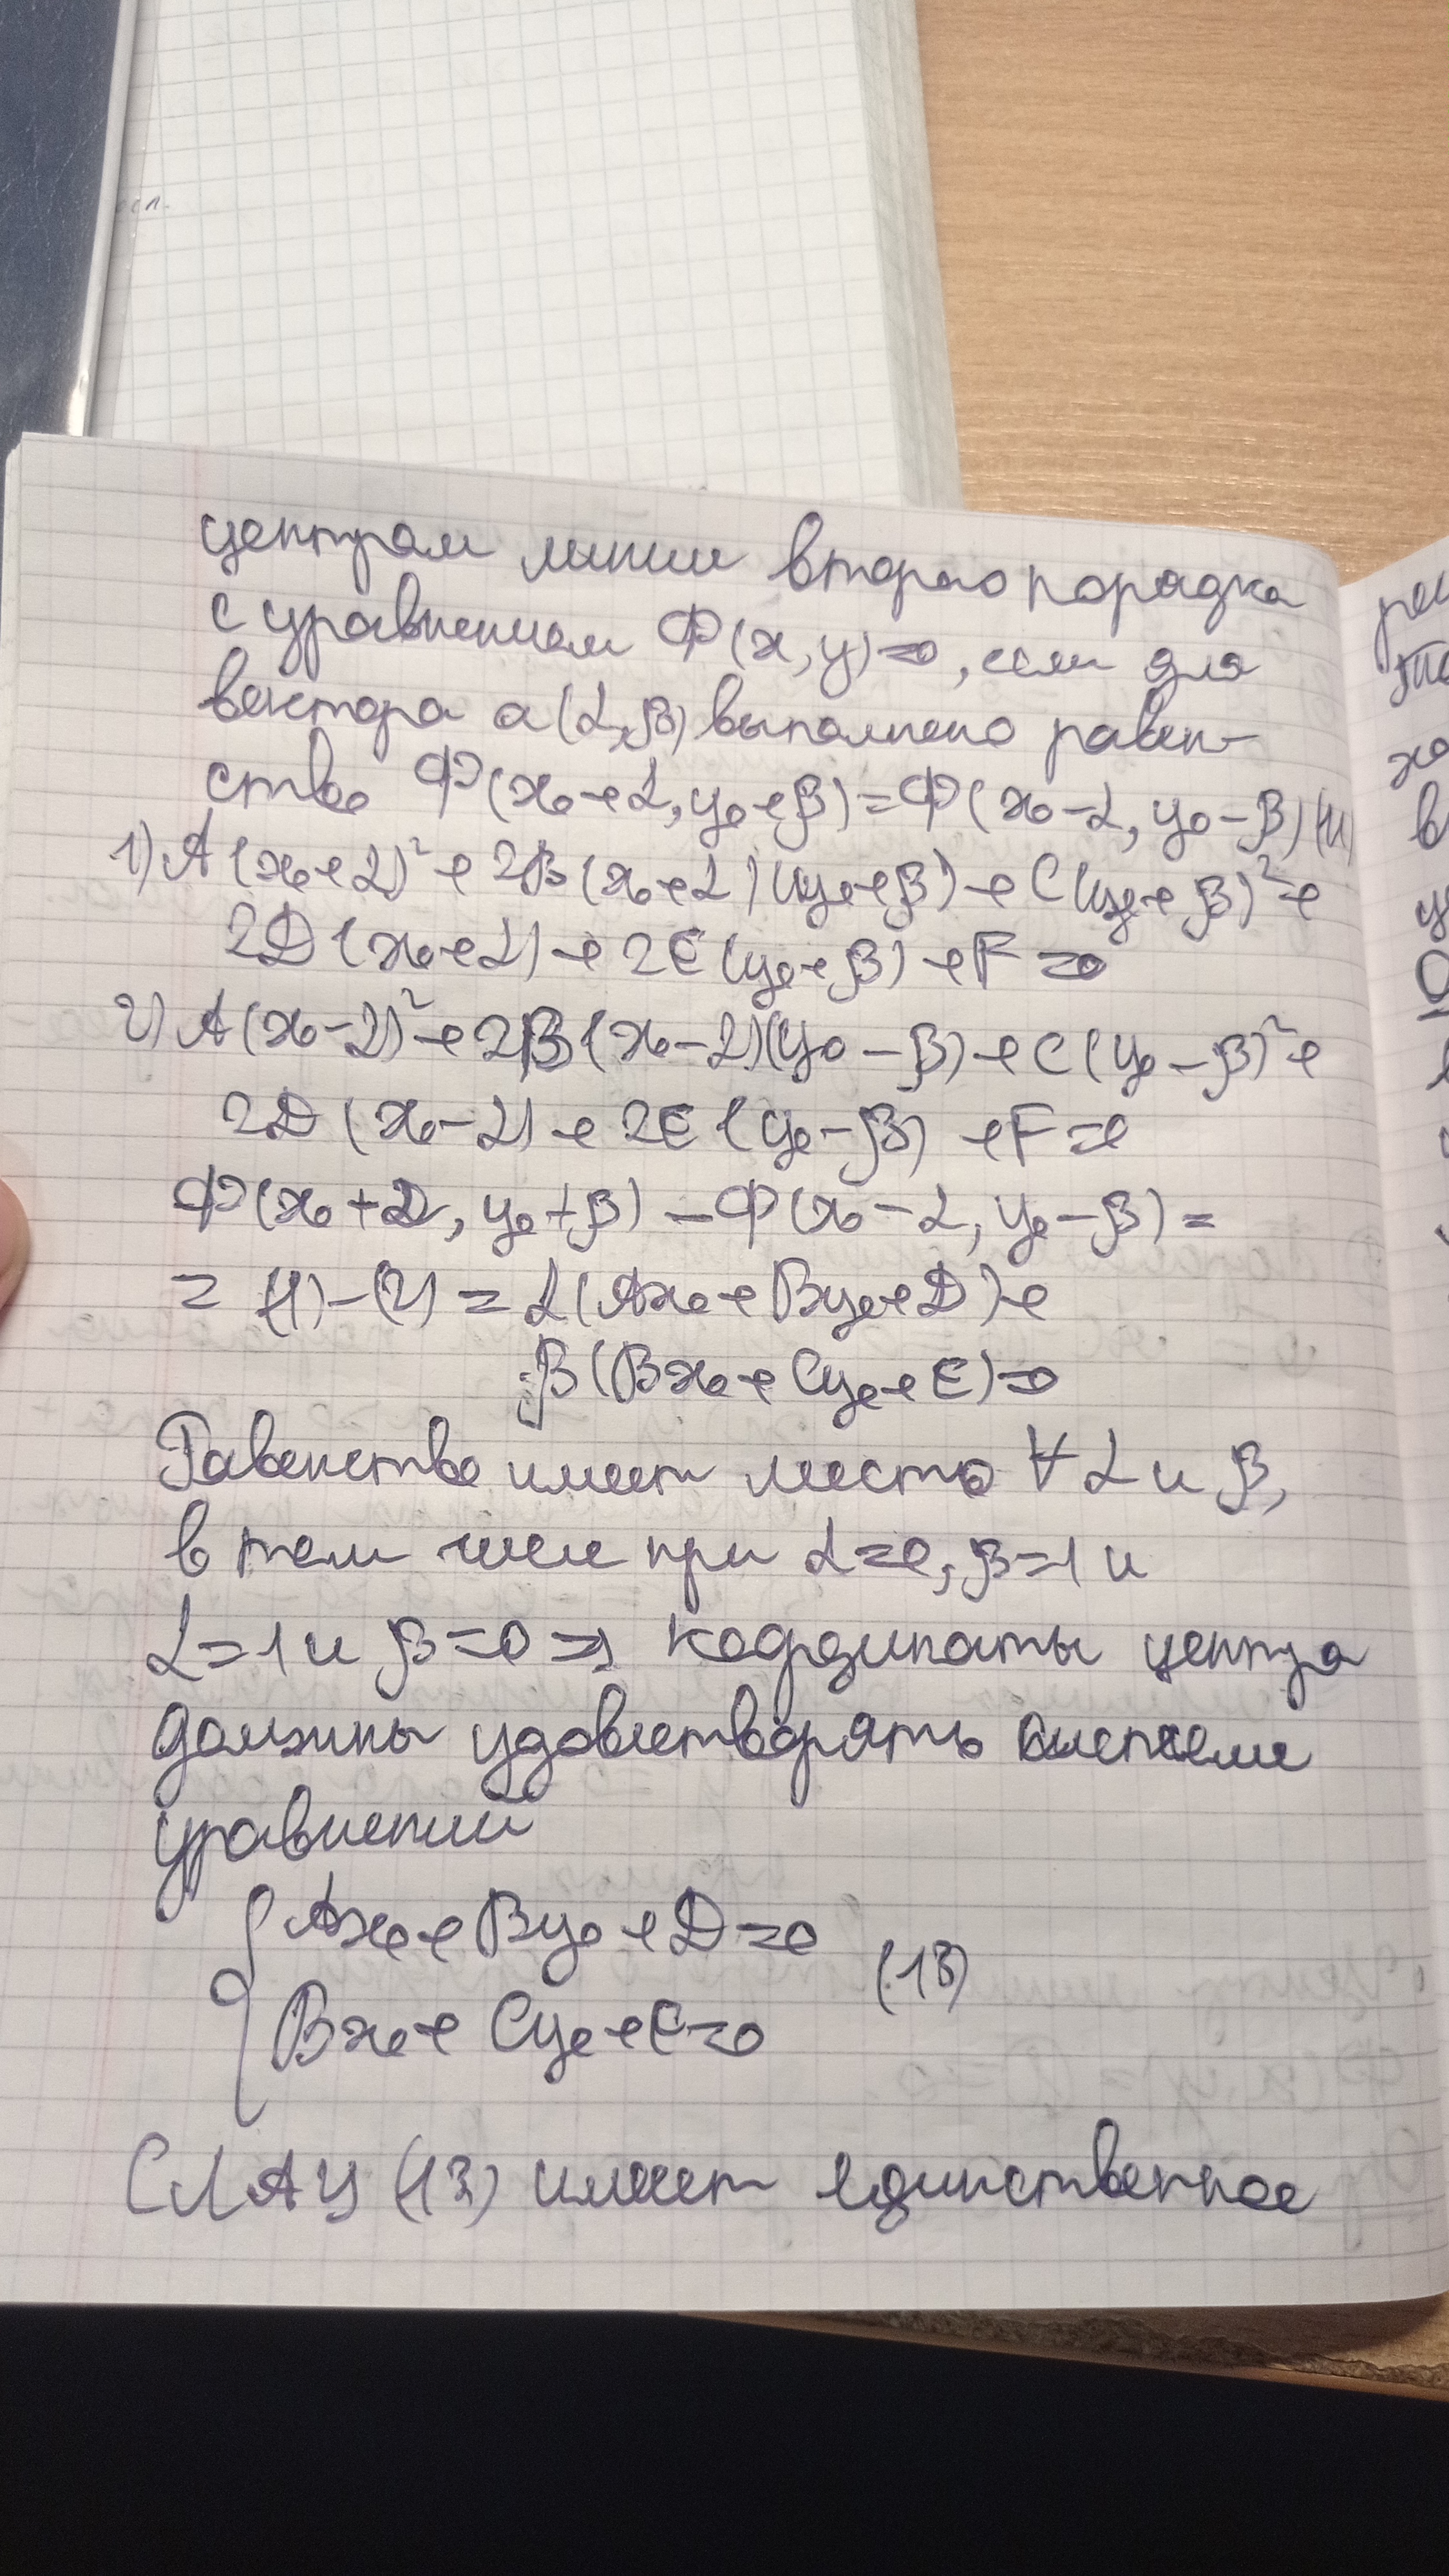 центром линии второго порядка
с уравнением Ф(x, y)=0, если для
вектора a(α, β) выполнено равен-
ство Ф(x₀+α, y₀+β)=Ф(x₀-α, y₀-β) (11)
1) A(x₀+α)²+2B(x₀+α)(y₀+β)+C(y₀+β)²+
2D(x₀+α)+2E(y₀+β)+F=0
2) A(x₀-α)²+2B(x₀-α)(y₀-β)+C(y₀-β)²+
2D(x₀-α)+2E(y₀-β)+F=0
Ф(x₀+α, y₀+β)-Ф(x₀-α, y₀-β)=
= (1)-(2) = α(Ax₀+By₀+D)+
β(Bx₀+Cy₀+E)=0
Равенство имеет место ∀ α и β,
в том числе при α=0, β=1 и
α=1 и β=0 => координаты центра
должны удовлетворять системе
уравнений
Ax₀+By₀+D=0
(13)
Bx₀+Cy₀+E=0
СЛАУ (13) имеет единственное